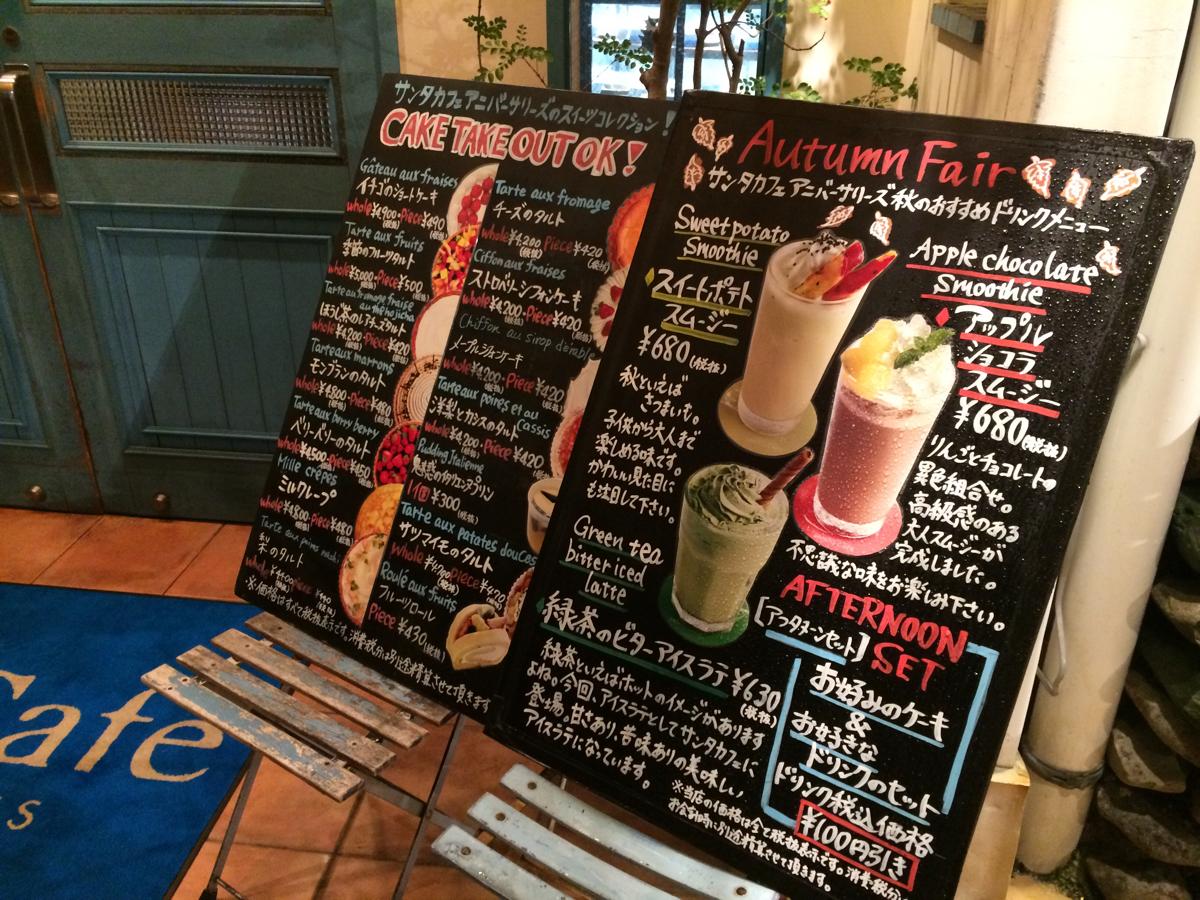 サンタカフェアニバーサリーズのスイーツコレクション!
CAKE TAKE OUT OK!
Gâteau aux fraises
イチゴのショートケーキ
whole¥4,900・Piece¥490
(税抜)
Tarte aux fruits
季節のフルーツタルト
whole¥5,000・Piece¥500
(税抜)
Tarte au fromage fraise
au méhojicha
ほうじ茶のレアチーズタルト
whole¥4,200・Piece¥420
(税抜)
Tarte aux marrons
モンブランのタルト
whole¥4,800・Piece¥480
(税抜)
Tarte aux berry berry
ベリーベリーのタルト
whole¥4,500・Piece¥450
(税抜)
Mille crêpes
ミルクレープ
whole¥4,800・Piece¥480
(税抜)
梨のタルト
Tarte aux fromage
チーズのタルト
whole¥4,200 Piece¥420
(税抜)
Ciffon aux fraises
ストロベリーシフォンケーキ
whole¥4,200・Piece¥420
(税抜)
Chiffon au sirop d'érable
whole¥4,200・Piece¥420
(税抜)
Tarte aux poires et au
cassis
洋梨とカシスのタルト
whole¥4,200・Piece¥420
(税抜)
Pudding Italienne
魅惑のイタリエンヌプリン
1個 ¥300
(税抜)
Tarte aux patates douces
サツマイモのタルト
whole¥4,200 Piece¥420
(税抜)
Roulé aux fruits
フルーツロール
Piece ¥430
(税抜)
※価格はすべて税抜表示です。消費税分は別途精算させて頂きます
Autumn Fair
サンタカフェアニバーサリーズ秋のおすすめドリンクメニュー
Sweet potato
Smoothie
スイートポテト
スムージー
¥680(税抜)
秋といえば
さつまいも。
子供から大人まで
楽しめる味です。
かわいい見た目に
も注目して下さい。
Apple chocolate
Smoothie
アップル
ショコラ
スムージー
¥680(税抜)
りんごとチョコレートの
異色組合せ。
高級感のある
大人スムージーが
完成しました。
不思議な味をお楽しみ下さい。
Green tea
bitter iced
latte
緑茶のビターアイスラテ ¥630
(税抜)
緑茶といえばホットのイメージがあります
よね。今回、アイスラテとしてサンタカフェに
登場。甘さあり、苦味ありの美味しい
アイスラテになっています。
AFTERNOON
SET
[アフタヌーンセット]
お好みのケーキ
&
お好きな
ドリンクのセット
ドリンク税込価格
¥100円引き
※当店の価格は全て税抜表示です。消費税分
お会計時に別途精算させて頂きます。
Cafe